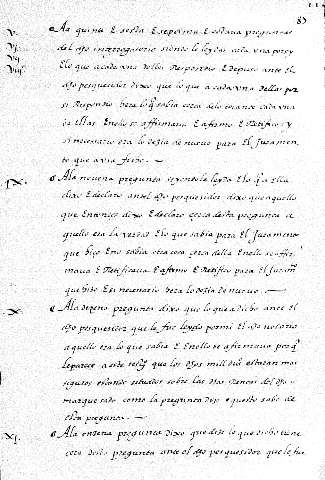 87
V. A la quinta E sesta E septima E octava preguntas
VI. del dho interrogatorio siendole leydas cada una por sy
VII. E lo que a cada una dellas Respondio E depuso ante el
VIII. dho pesquesidor dixo que lo que a cada una dellas por
si Respondio hera lo q̃ sabia cerca de lo contenido cada una
dellas E nello se affirmava E afirmo E Retifico y
si necesario era lo dezia de nuevo para El Juramento
que avia fecho.
IX. A la novena pregunta seyendole leyda E lo q̃ a ella
dixo E declaro antel dho pesquesidor dixo que aquello
que Entonces dixo E declaro cerca desta pregunta
aquello era la verdad E lo que sabia para El Juramento
que hizo E no sabia otra cosa cerca della E nello se affir
mava E Retificava E afirmo E Retifico para El Juram̃
que hizo E si necesario hera lo dezia de nuevo.
X. A la decima pregunta dixo que lo que a dicho ante el
dho pesquesidor que le fue leydo por mi El dho notario
aquello era lo que sabia E Enello se afirmava porq̃
le parece a este testigo que los dhos mill duos estaran mas
siguros estando situados sobre las dhas Rentas del dho
marquesado como la pregunta dize e questo sabe de
esta pregunta.
XI. A la onzena pregunta dixo que dize lo que dicho tiene
cerca desta pregunta ante el dho pesquesidor que le fue